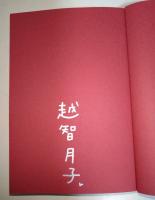 越智月子